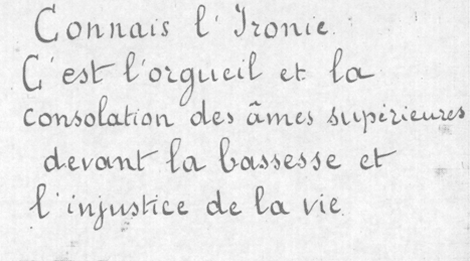 Connais l'Ironie.
C'est l'orgueil et la
consolation des âmes supérieures
devant la bassesse et
l'injustice de la vie.